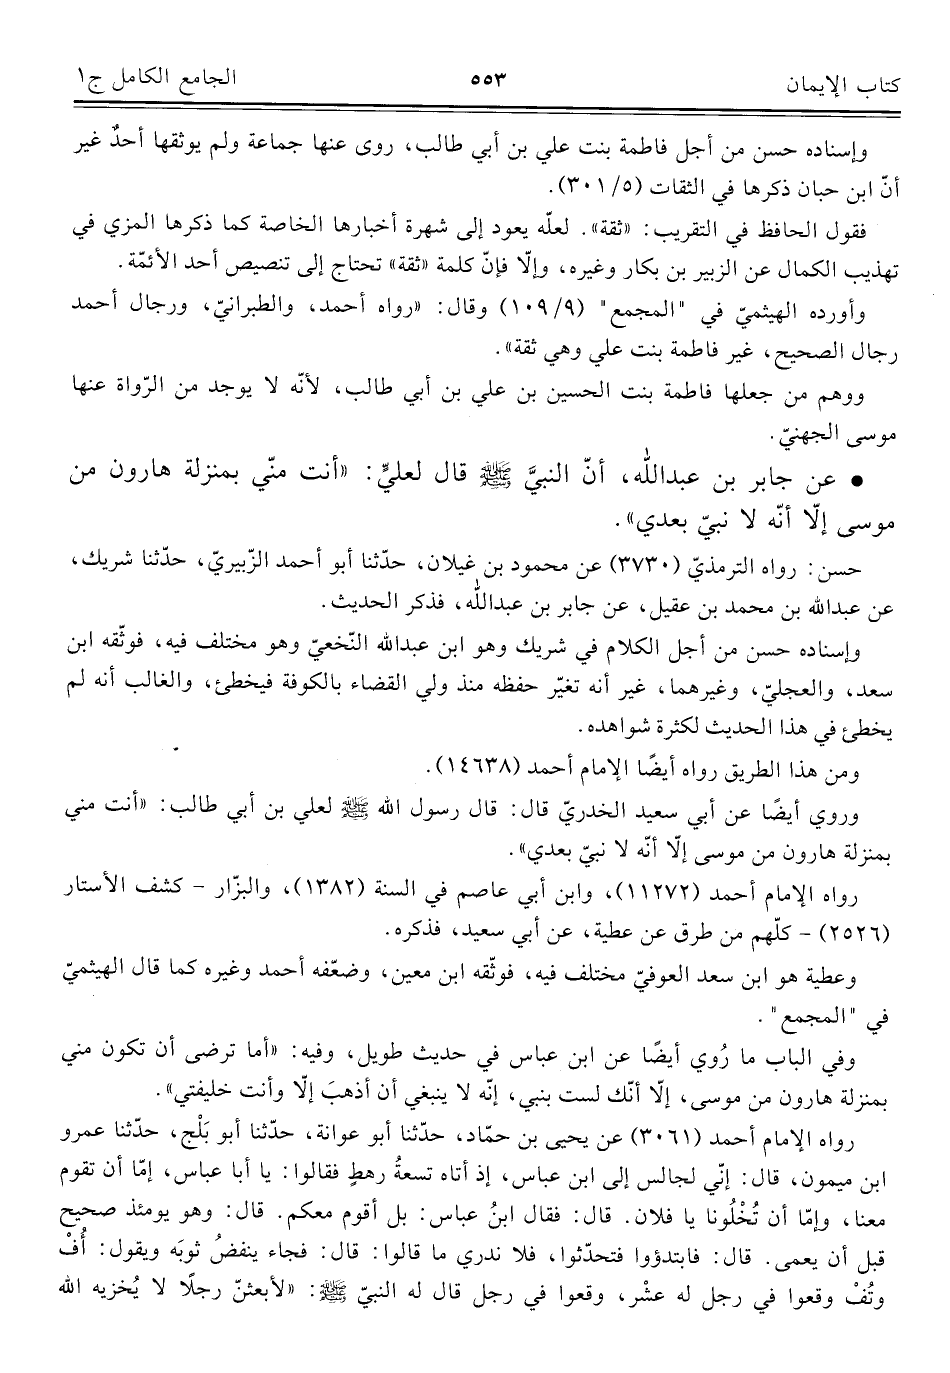 كتاب الإيمان ٥٥٣ الجامع الكامل ج١
وإسناده حسن من أجل فاطمة بنت علي بن أبي طالب، روى عنها جماعة ولم يوثقها أحدٌ غير
أنّ ابن حبان ذكرها في الثقات (٣٠١/٥).
فقول الحافظ في التقريب: «ثقة». لعلّه يعود إلى شهرة أخبارها الخاصة كما ذكرها المزي في
تهذيب الكمال عن الزبير بن بكار وغيره، وإلّا فإنّ كلمة «ثقة» تحتاج إلى تنصيص أحد الأئمّة.
وأورده الهيثميّ في "المجمع" (١٠٩/٩) وقال: «رواه أحمد، والطبرانيّ، ورجال أحمد
رجال الصحيح، غير فاطمة بنت علي وهي ثقة».
ووهم من جعلها فاطمة بنت الحسين بن علي بن أبي طالب، لأنّه لا يوجد من الرّواة عنها
موسى الجهنيّ.
• عن جابر بن عبدالله، أنّ النبيَّ ﷺ قال لعليٍّ: «أنت منّي بمنزلة هارون من
موسى إلّا أنّه لا نبيّ بعدي».
حسن: رواه الترمذيّ (٣٧٣٠) عن محمود بن غيلان، حدّثنا أبو أحمد الزّبيريّ، حدّثنا شريك،
عن عبدالله بن محمد بن عقيل، عن جابر بن عبدالله، فذكر الحديث.
وإسناده حسن من أجل الكلام في شريك وهو ابن عبدالله النّخعيّ وهو مختلف فيه، فوثّقه ابن
سعد، والعجليّ، وغيرهما، غير أنه تغيّر حفظه منذ ولي القضاء بالكوفة فيخطئ، والغالب أنه لم
يخطئ في هذا الحديث لكثرة شواهده.
ومن هذا الطريق رواه أيضًا الإمام أحمد (١٤٦٣٨).
وروي أيضًا عن أبي سعيد الخدريّ قال: قال رسول الله ﷺ لعلي بن أبي طالب: «أنت مني
بمنزلة هارون من موسى إلّا أنّه لا نبيّ بعدي».
رواه الإمام أحمد (١١٢٧٢)، وابن أبي عاصم في السنة (١٣٨٢)، والبزّار - كشف الأستار
(٢٥٢٦) - كلّهم من طرق عن عطية، عن أبي سعيد، فذكره.
وعطية هو ابن سعد العوفيّ مختلف فيه، فوثّقه ابن معين، وضعّفه أحمد وغيره كما قال الهيثميّ
في "المجمع".
وفي الباب ما رُوي أيضًا عن ابن عباس في حديث طويل، وفيه: «أما ترضى أن تكون مني
بمنزلة هارون من موسى، إلّا أنّك لست بنبي، إنّه لا ينبغي أن أذهبَ إلّا وأنت خليفتي».
رواه الإمام أحمد (٣٠٦١) عن يحيى بن حمّاد، حدّثنا أبو عوانة، حدّثنا أبو بَلْج، حدّثنا عمرو
ابن ميمون، قال: إنّي لجالس إلى ابن عباس، إذ أتاه تسعةُ رهطٍ فقالوا: يا أبا عباس، إمّا أن تقوم
معنا، وإمّا أن تُخْلُونا يا فلان. قال: فقال ابنُ عباس: بل أقوم معكم. قال: وهو يومئذ صحيح
قبل أن يعمى. قال: فابتدؤوا فتحدّثوا، فلا ندري ما قالوا: قال: فجاء ينفضُ ثوبَه ويقول: أُفْ
وتُفْ وقعوا في رجل له عشْر، وقعوا في رجل قال له النبيّ ﷺ: «لأبعثنّ رجلًا لا يُخزيه الله